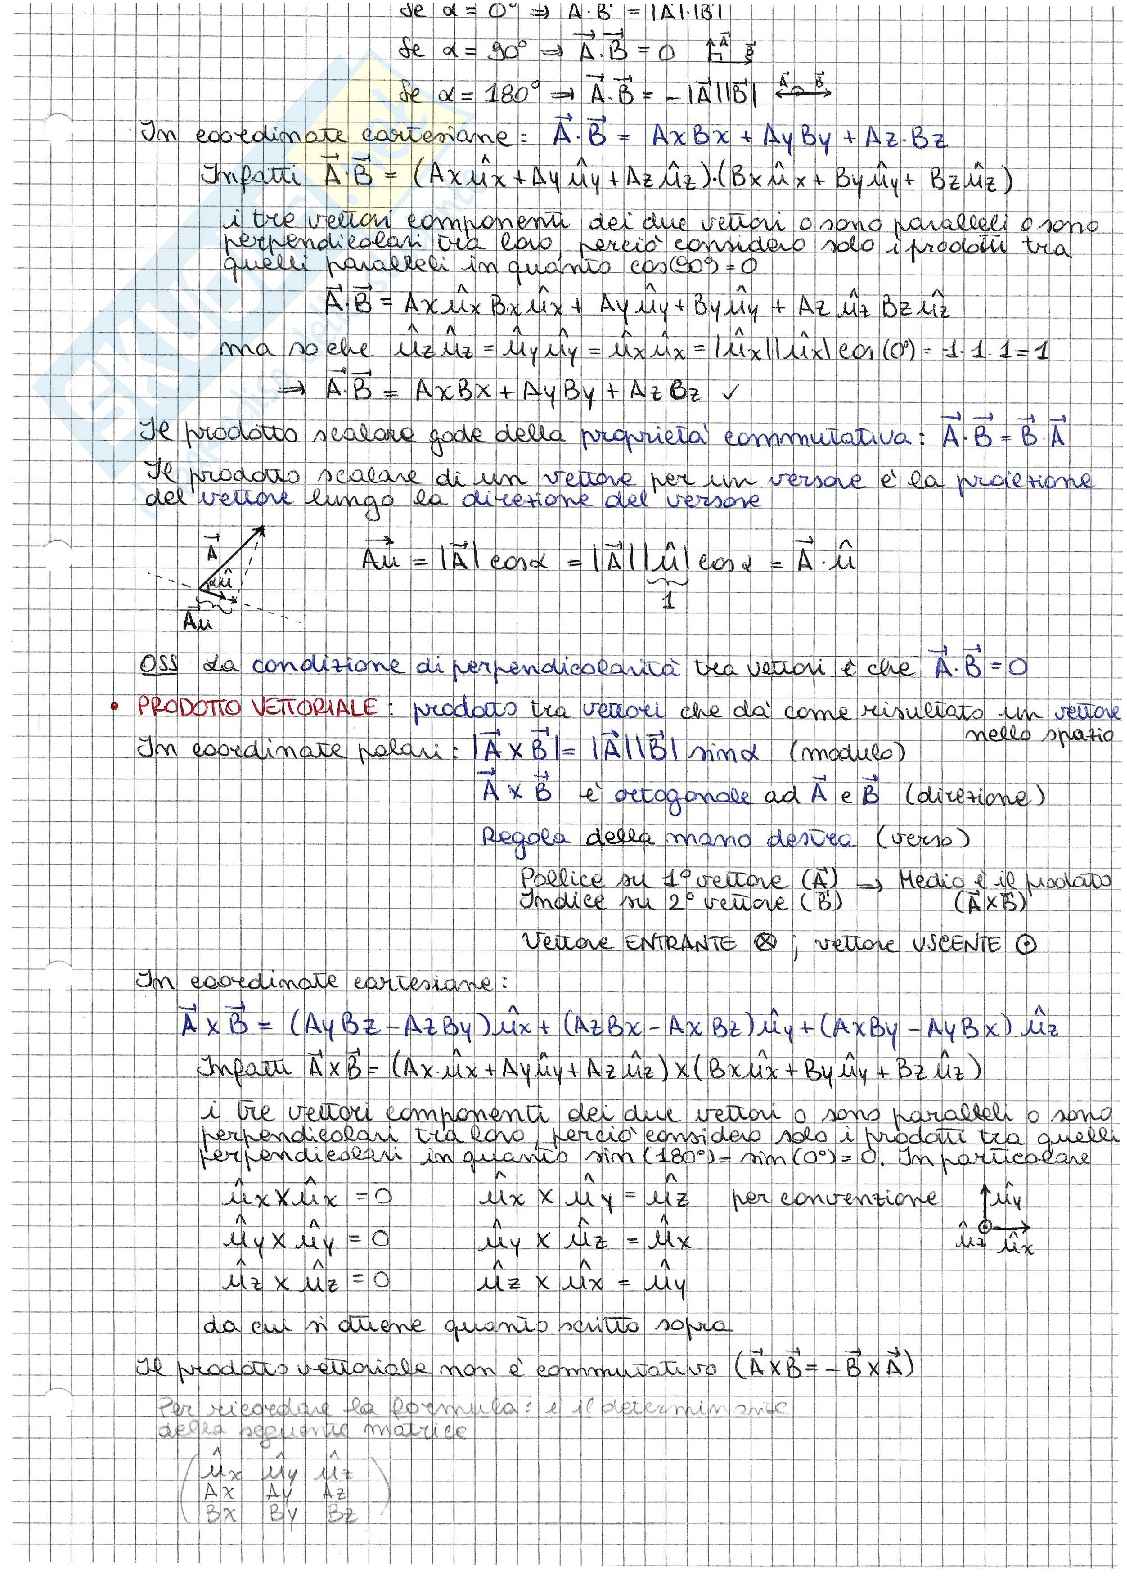 Se α = 0° ⇒ A·B = |A|·|B|
Se α = 90° ⇒ A⃗·B⃗ = 0 A⃗ B⃗
Se α = 180° ⇒ A⃗·B⃗ = -|A⃗||B⃗| A⃗ B⃗
In coordinate cartesiane: A⃗·B⃗ = AxBx + AyBy + Az·Bz
Infatti A⃗·B⃗ = (Axûx + Ayûy + Azûz)·(Bxûx + Byûy + Bzûz)
i tre vettori componenti dei due vettori o sono paralleli o sono
perpendicolari tra loro, perciò considero solo i prodotti tra
quelli paralleli in quanto cos(90°) = 0
A⃗·B⃗ = Axûx Bxûx + Ayûy + Byûy + Az ûz Bzûz
ma so che ûzûz = ûyûy = ûxûx = |ûx||ûx| cos(0°) = 1·1·1 = 1
⇒ A⃗·B⃗ = AxBx + AyBy + AzBz ✓
Il prodotto scalare gode della proprietà commutativa: A⃗·B⃗ = B⃗·A⃗
Il prodotto scalare di un vettore per un versore è la proiezione
del vettore lungo la direzione del versore
A⃗
αû
A⃗u
A⃗u = |A⃗| cosα = |A⃗||û| cosα = A⃗·û
1
OSS La condizione di perpendicolarità tra vettori è che A⃗·B⃗ = 0
• PRODOTTO VETTORIALE: prodotto tra vettori che dà come risultato un vettore
nello spazio
In coordinate polari: |A⃗ x B⃗| = |A⃗||B⃗| sinα (modulo)
A⃗ x B⃗ è ortogonale ad A⃗ e B⃗ (direzione)
Regola della mano destra (verso)
Pollice su 1° vettore (A⃗) → Medio è il prodotto
Indice su 2° vettore (B⃗) (A⃗xB⃗)
Vettore ENTRANTE ⊗ ; vettore USCENTE ⊙
In coordinate cartesiane:
A⃗ x B⃗ = (AyBz - AzBy)ûx + (AzBx - AxBz)ûy + (AxBy - AyBx) ûz
Infatti A⃗xB⃗ = (Ax·ûx + Ayûy + Azûz) x (Bxûx + Byûy + Bzûz)
i tre vettori componenti dei due vettori o sono paralleli o sono
perpendicolari tra loro, perciò considero solo i prodotti tra quelli
perpendicolari in quanto sin(180°) = sin(0°) = 0. In particolare
ûx x ûx = 0 ûx x ûy = ûz per convenzione ûy
ûy x ûy = 0 ûy x ûz = ûx ûz ûx
ûz x ûz = 0 ûz x ûx = ûy
da cui si ottiene quanto scritto sopra
Il prodotto vettoriale non è commutativo (A⃗xB⃗ = -B⃗xA⃗)
Per ricordare la formula: è il determinante
della seguente matrice
ûx ûy ûz
Ax Ay Az
Bx By Bz